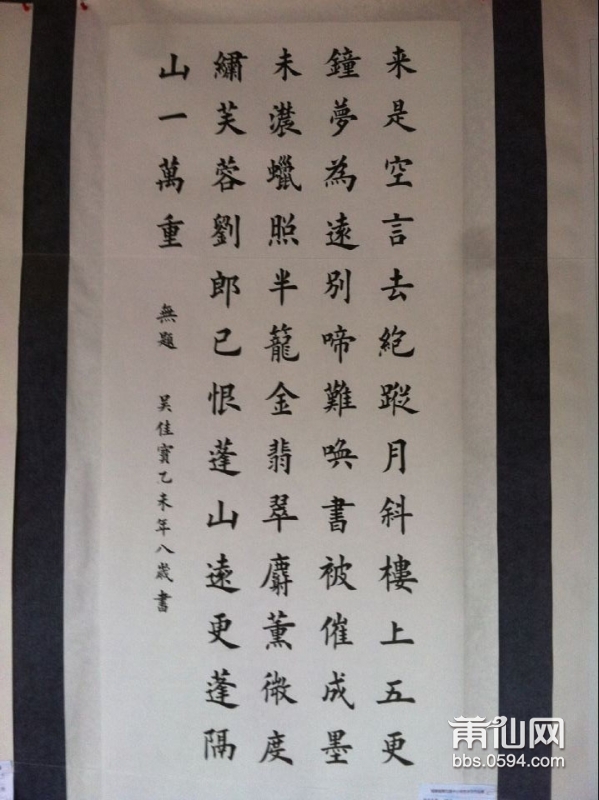 来是空言去絶蹤月斜樓上五更
鐘夢為遠别啼難唤書被催成墨
未濃蠟照半籠金翡翠麝薰微度
繡芙蓉劉郎已恨蓬山遠更蓬隔
山一萬重
無題 吴佳寶乙未年八歲書
莆仙网
bbs.0594.com